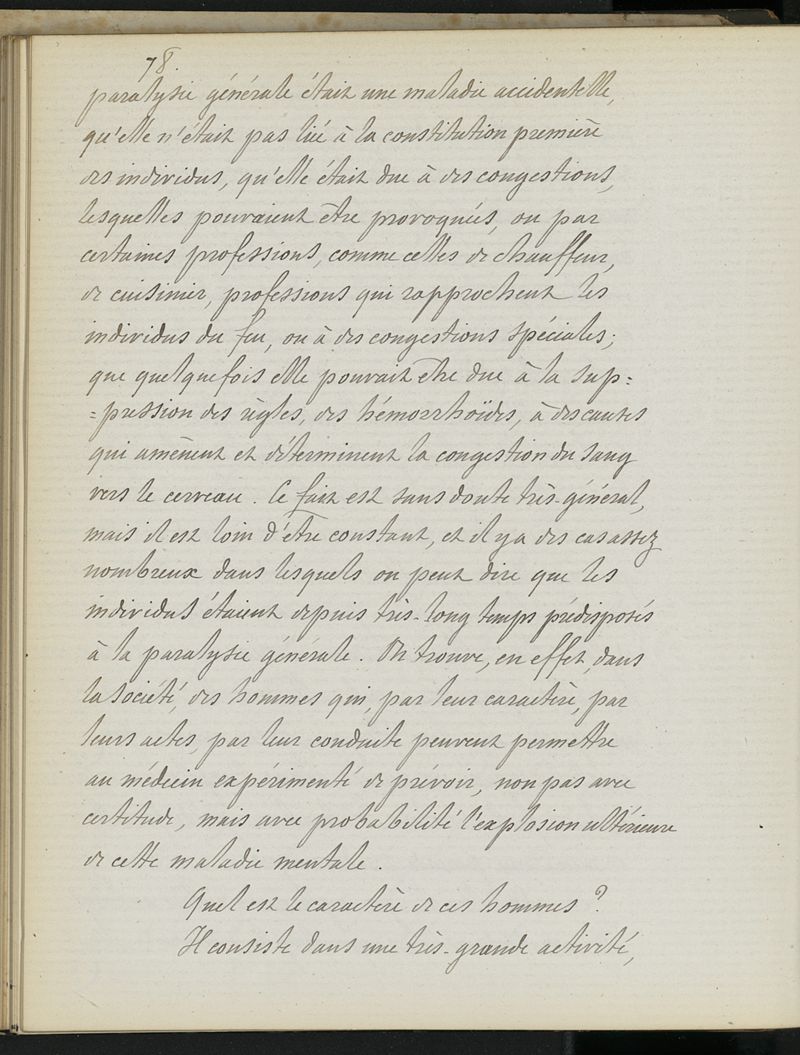 78.
paralysie générale était une maladie accidentelle,
qu'elle n'était pas liée à la constitution première
des individus, qu'elle était due à des congestions,
lesquelles pouvaient être provoquées, ou par
certaines professions, comme celles de chauffeur,
de cuisinier, professions qui rapprochent les
individus du feu, ou à des congestions spéciales;
que quelquefois elle pouvait être due à la sup=
=pression des règles, des hémorrhoïdes, à des causes
qui amènent et déterminent la congestion du sang
vers le cerveau. Ce fait est sans doute très-général,
mais il est loin d'être constant, et il y a des cas assez
nombreux dans lesquels on peut dire que les
individus étaient depuis très-long temps prédisposés
à la paralysie générale. On trouve, en effet, dans
la société, des hommes qui, par leur caractère, par
leurs actes, par leur conduite peuvent permettre
au médecin expérimenté de prévoir, non pas avec
certitude, mais avec probabilité l'explosion ultérieure
de cette maladie mentale.
Quel est le caractère de ces hommes?
Il consiste dans une très-grande activité,